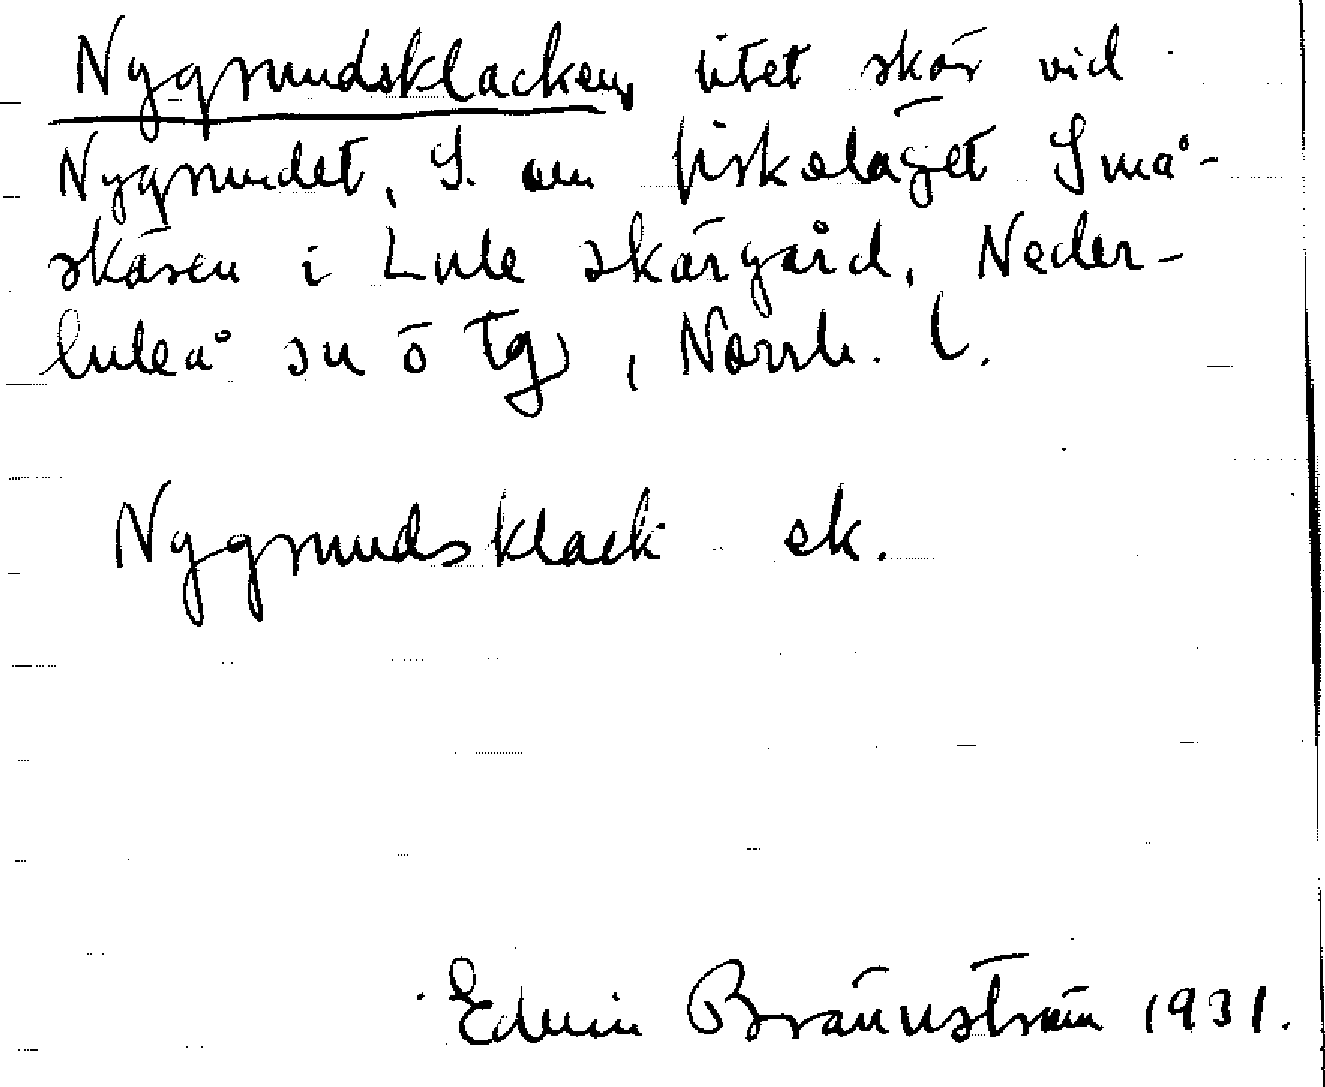 Nygrundsklacken, litet skär vid
Nygrundet, S. om fiskeläget Små-
skären i Lule skärgård, Neder-
luleå sn ö Tg, Norrb. l.
Nygrundsklack ek.
Edwin Brännström 1931.